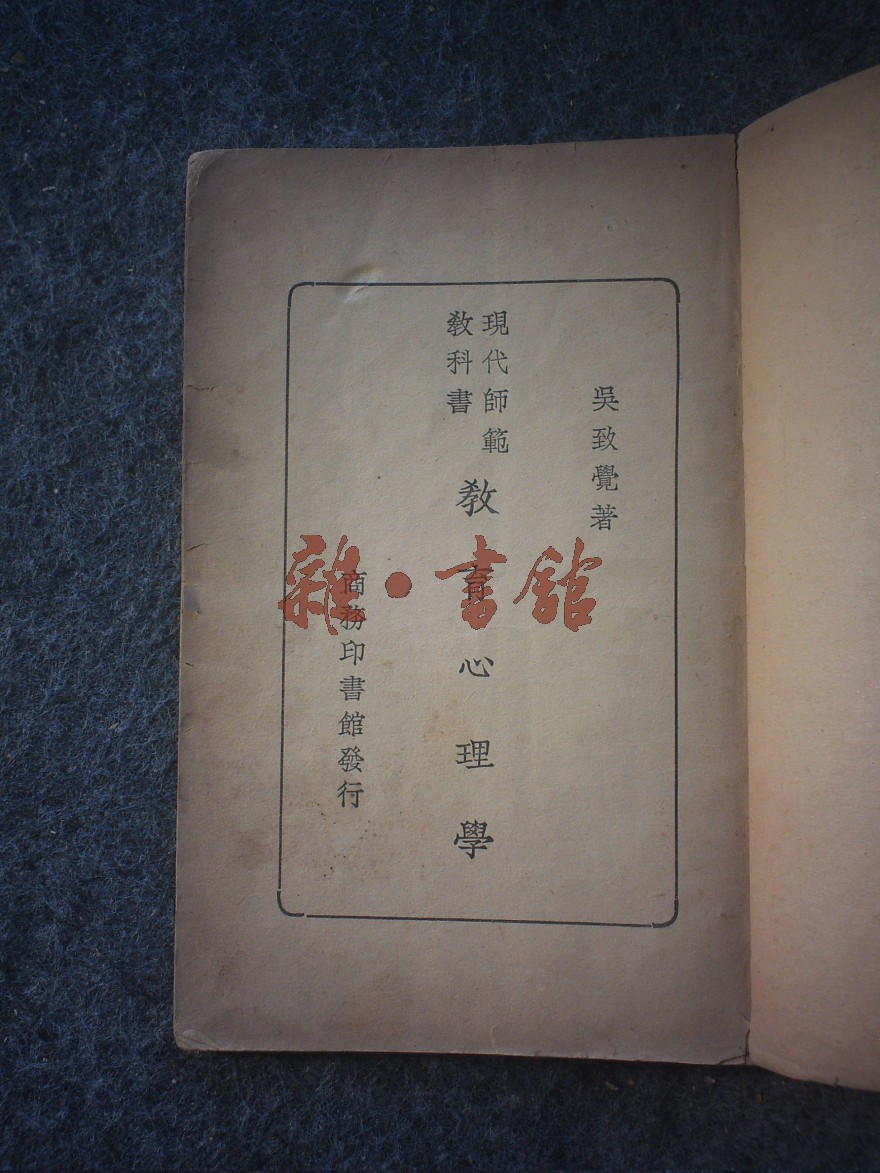 吳致覺著
現代師範
教科書
教育心理學
商務印書館發行
雜·書館